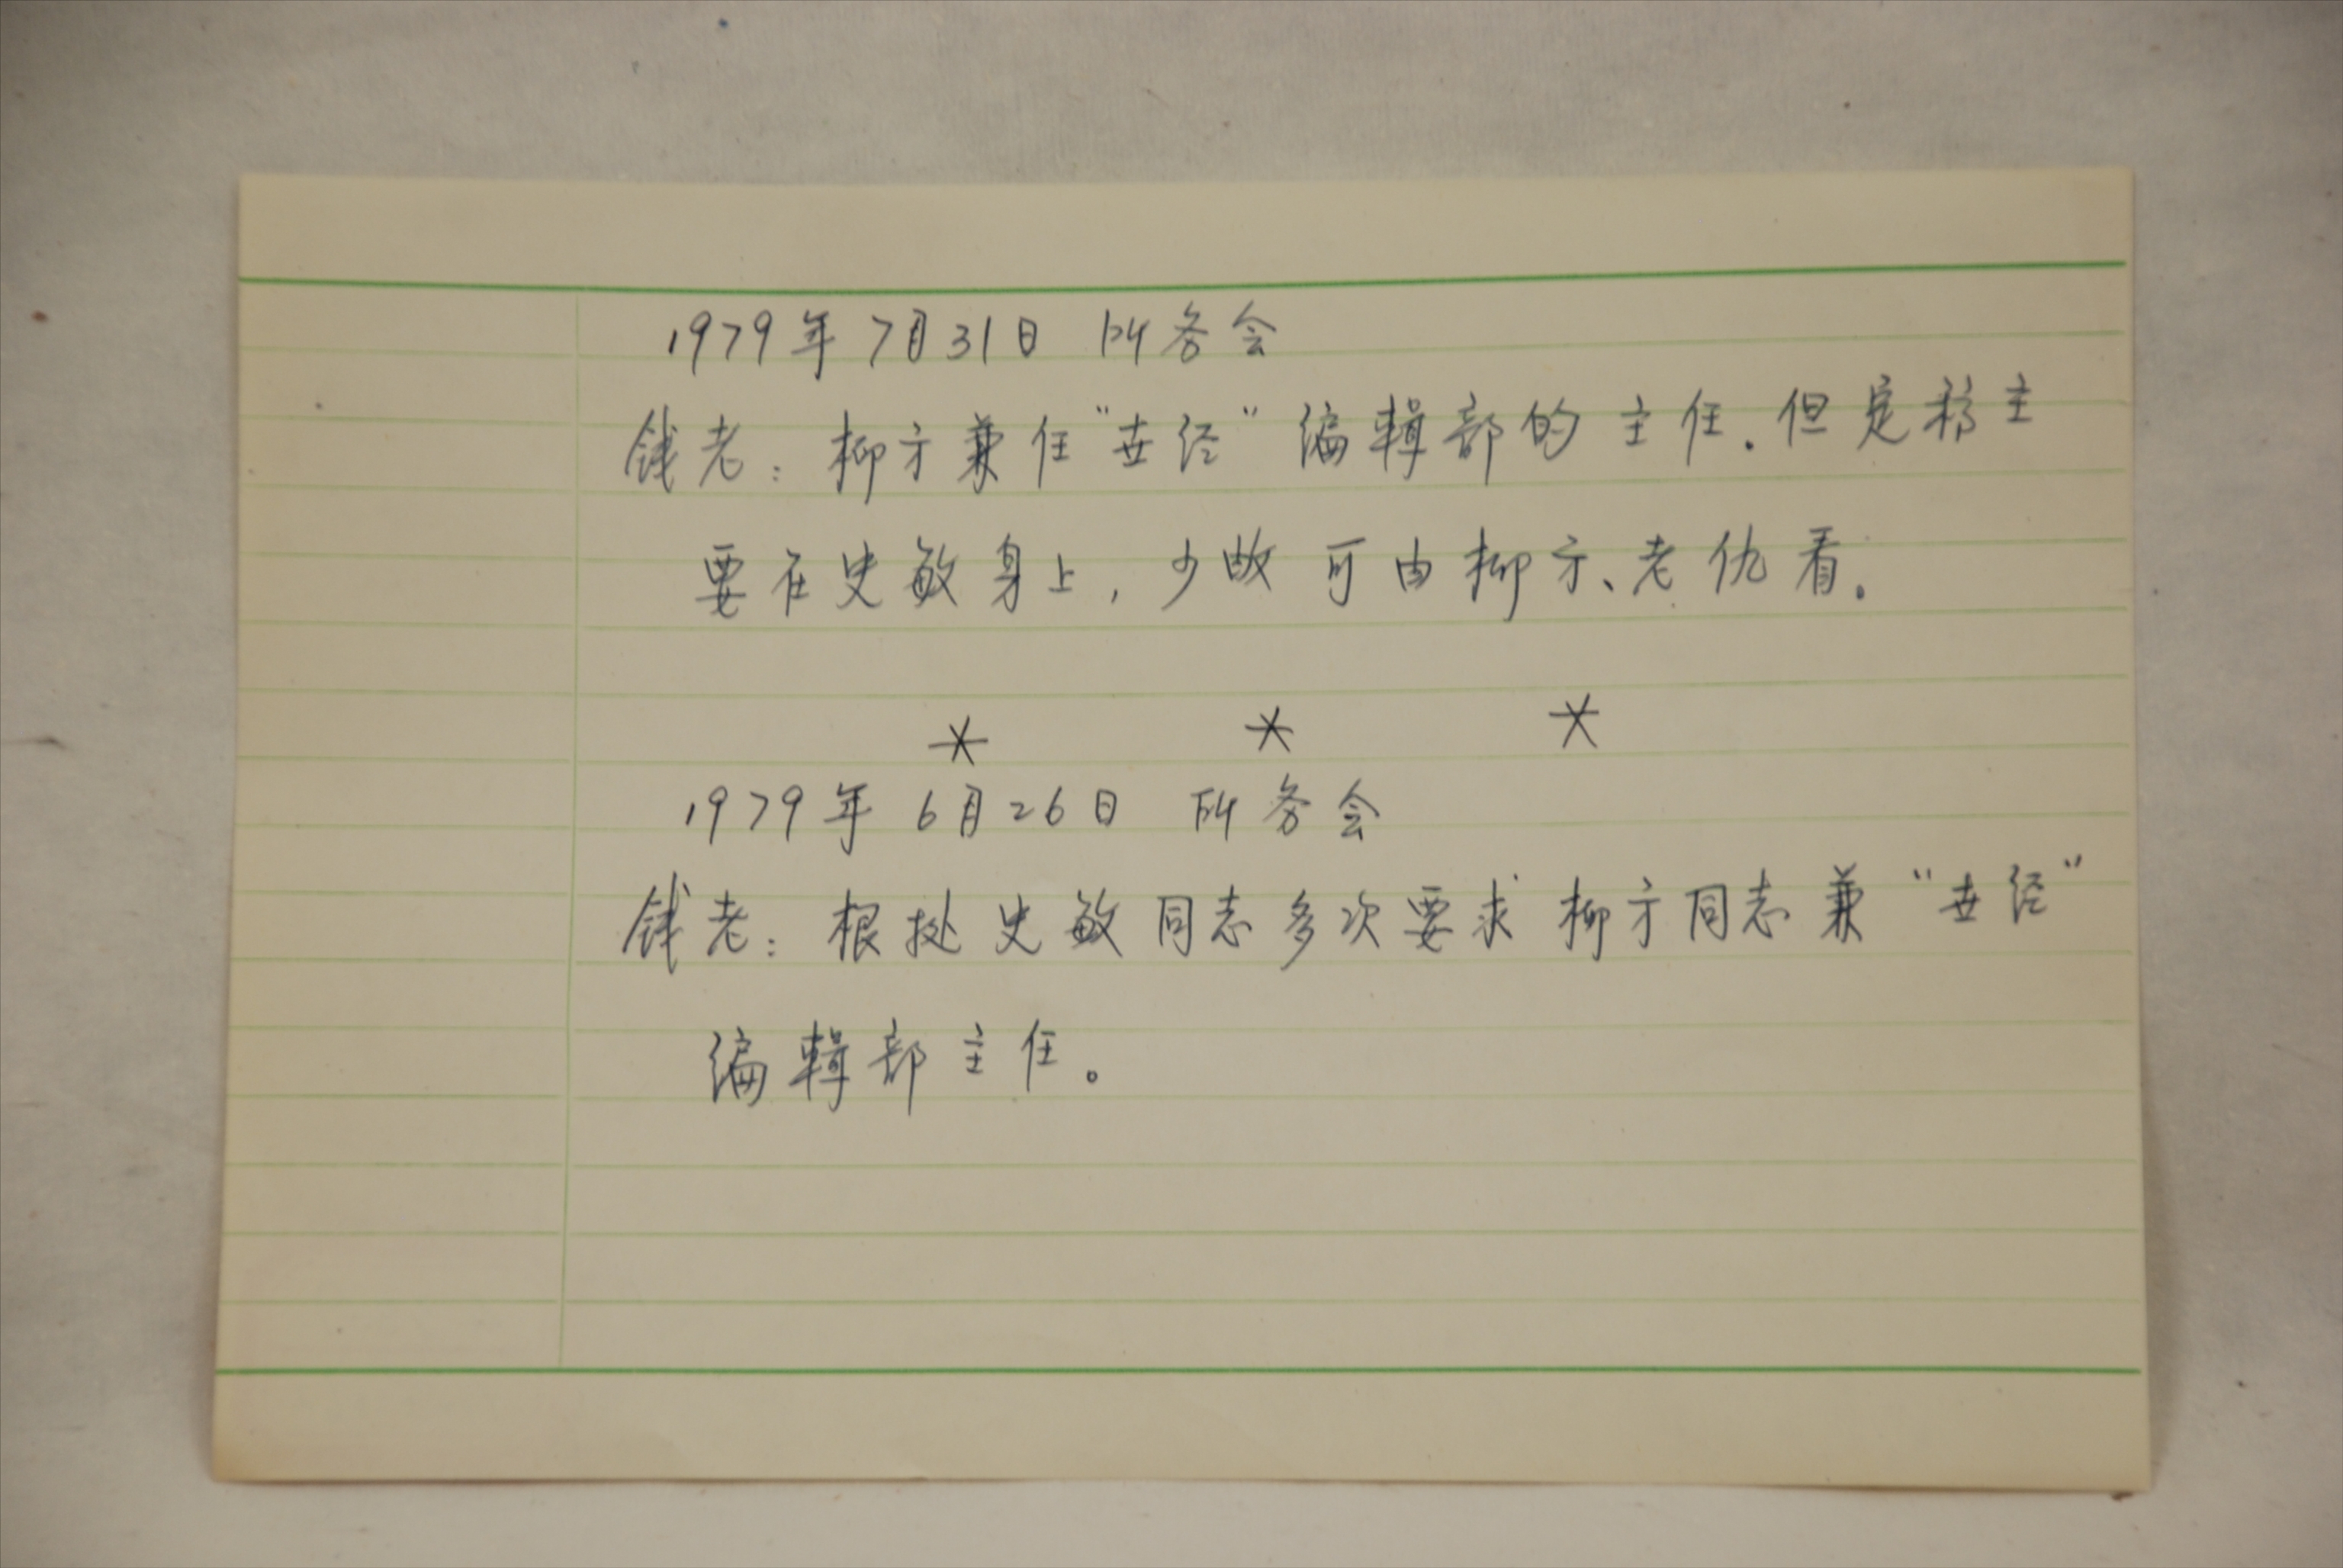 1979年7月31日 所务会
钱老：柳方兼任“世经”编辑部的主任.但定稿主
要在史敏身上，少数可由柳方、老仇看。
* * *
1979年6月26日 所务会
钱老：根据史敏同志多次要求柳方同志兼“世经”
编辑部主任。